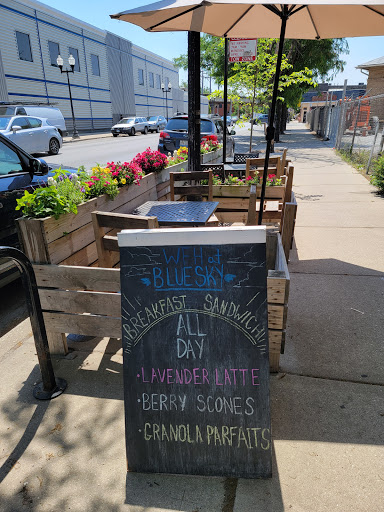 W-H at
BLUE SKY
BREAKFAST SANDWICH
ALL
DAY
• LAVENDER LATTE
• BERRY SCONES
• GRANOLA PARFAITS